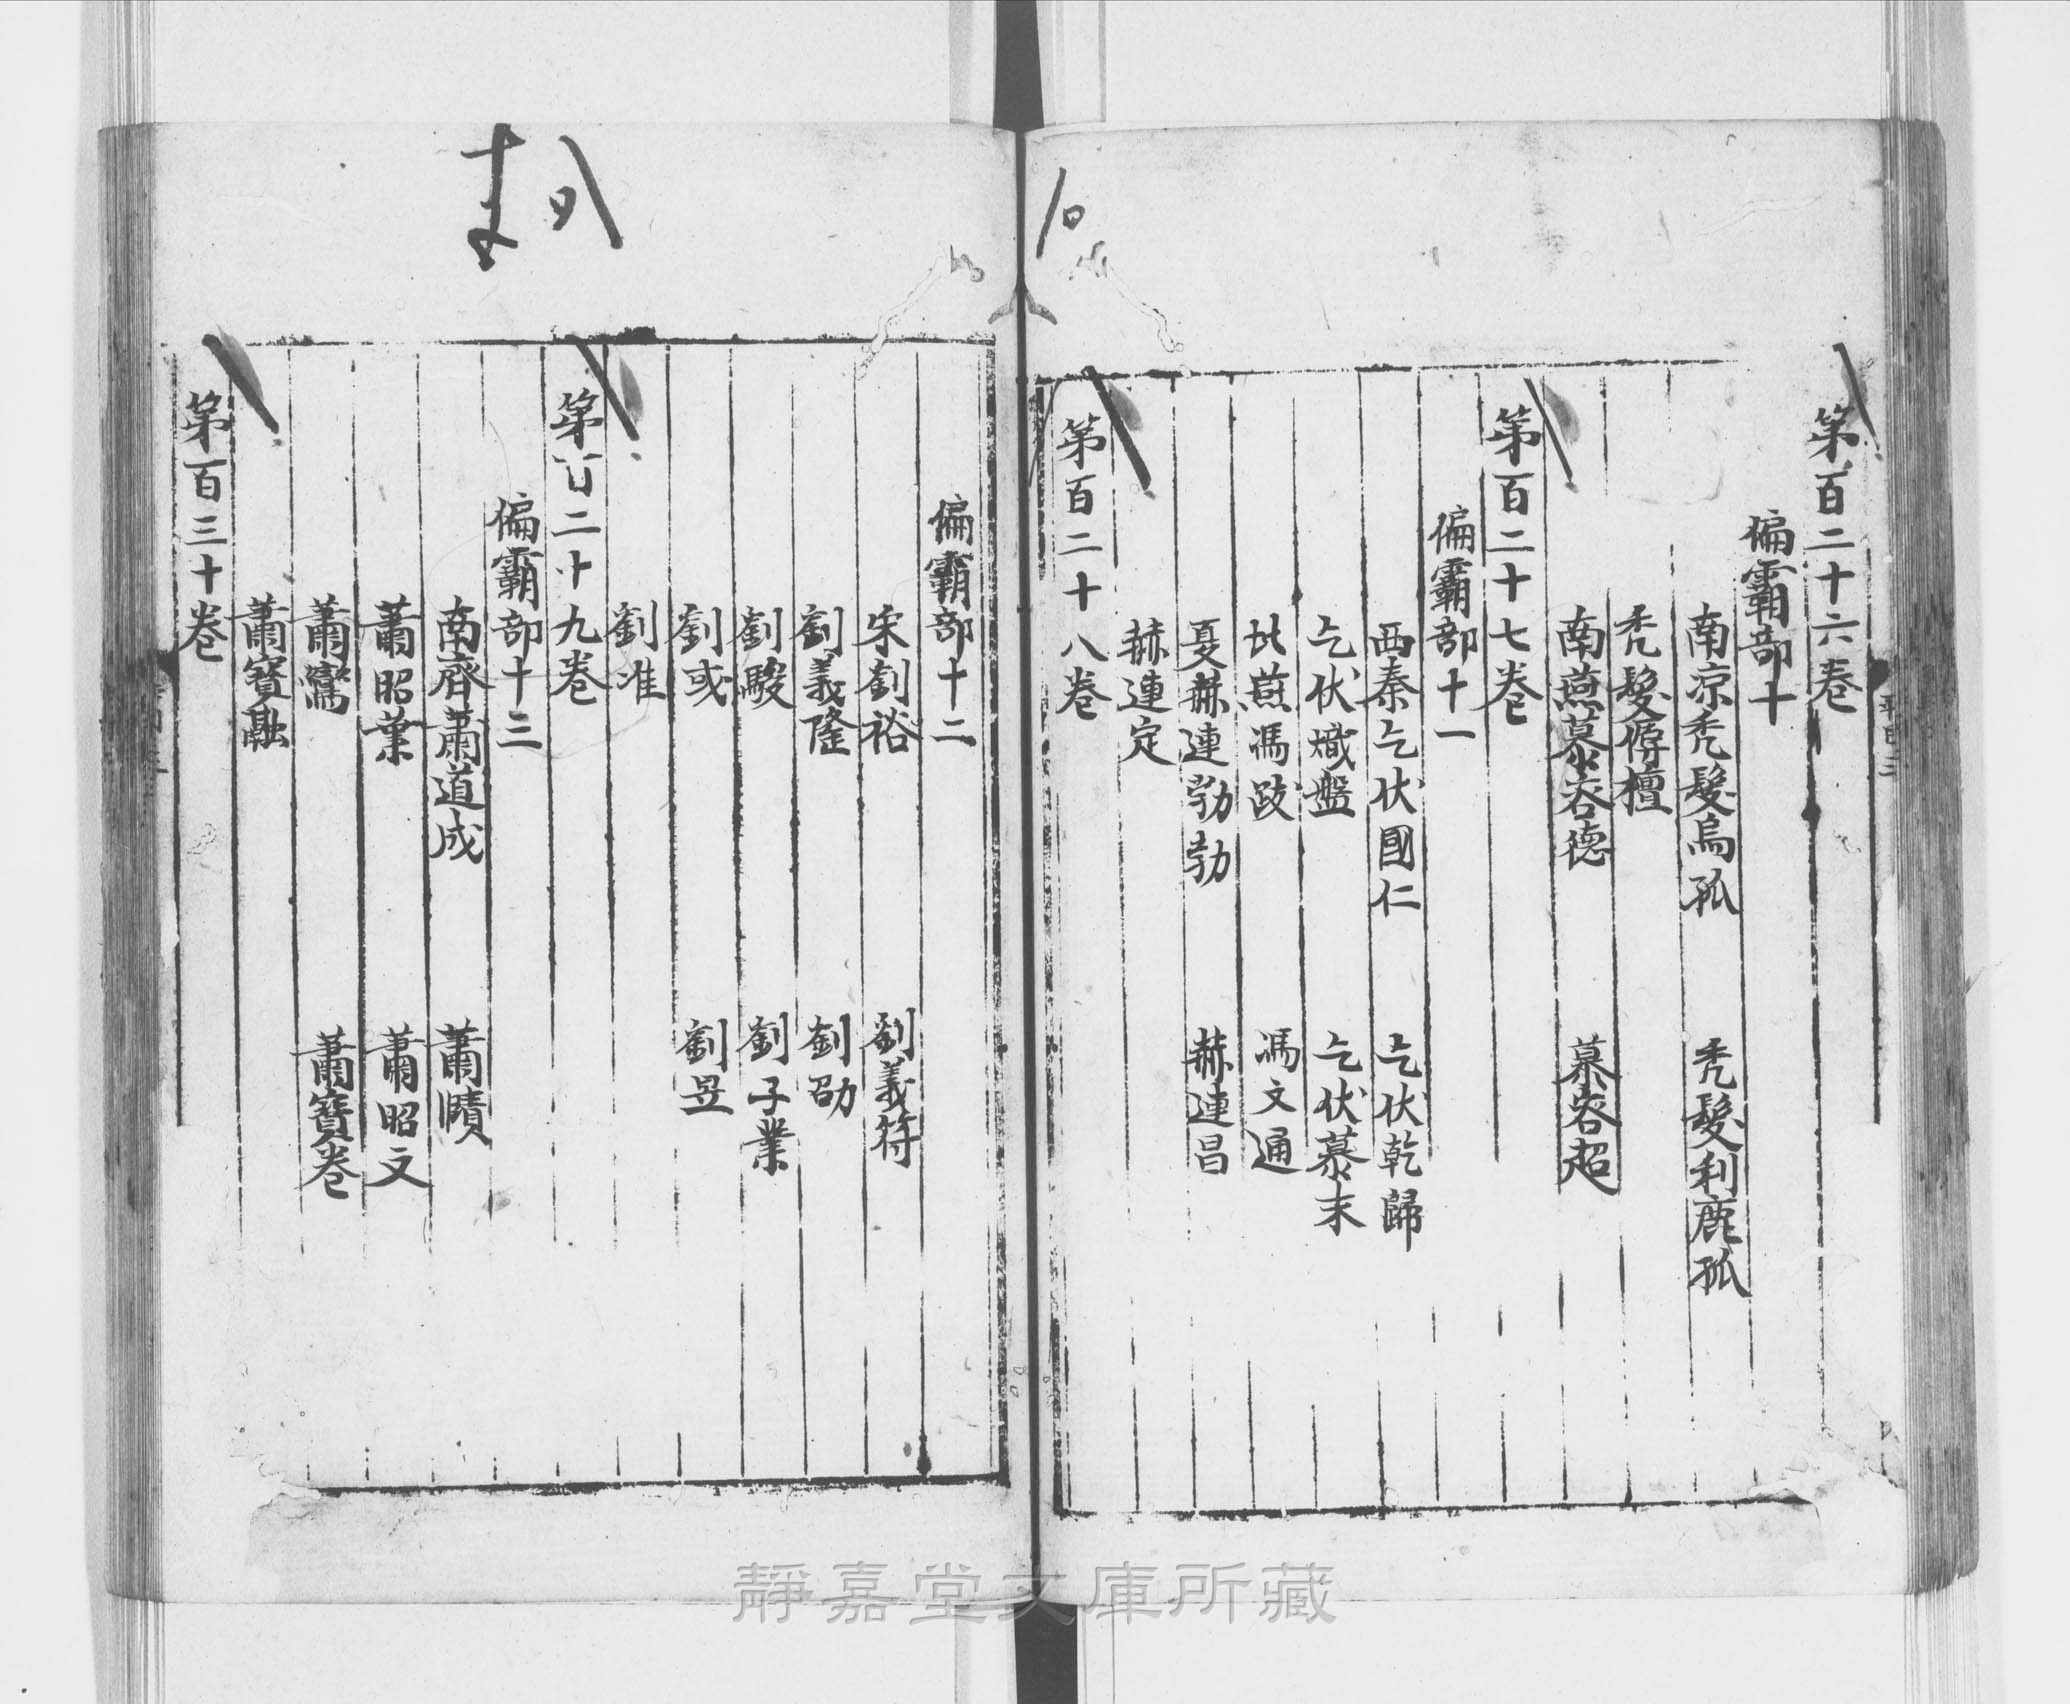 第百二十六卷
偏霸部十
南涼禿髮烏孤　禿髮利鹿孤
禿髮傉檀
南燕慕容德　慕容超
第百二十七卷
偏霸部十一
西秦乞伏國仁　乞伏乾歸
乞伏熾盤　乞伏慕末
北燕馮跋　馮文通
夏赫連勃勃　赫連昌
赫連定
第百二十八卷
偏霸部十二
宋劉裕　劉義符
劉義隆　劉劭
劉駿　劉子業
劉彧　劉昱
劉准
第百二十九卷
偏霸部十三
南齊蕭道成　蕭賾
蕭昭業　蕭昭文
蕭鸞　蕭寶卷
蕭寶融
第百三十卷
靜嘉堂文庫所藏